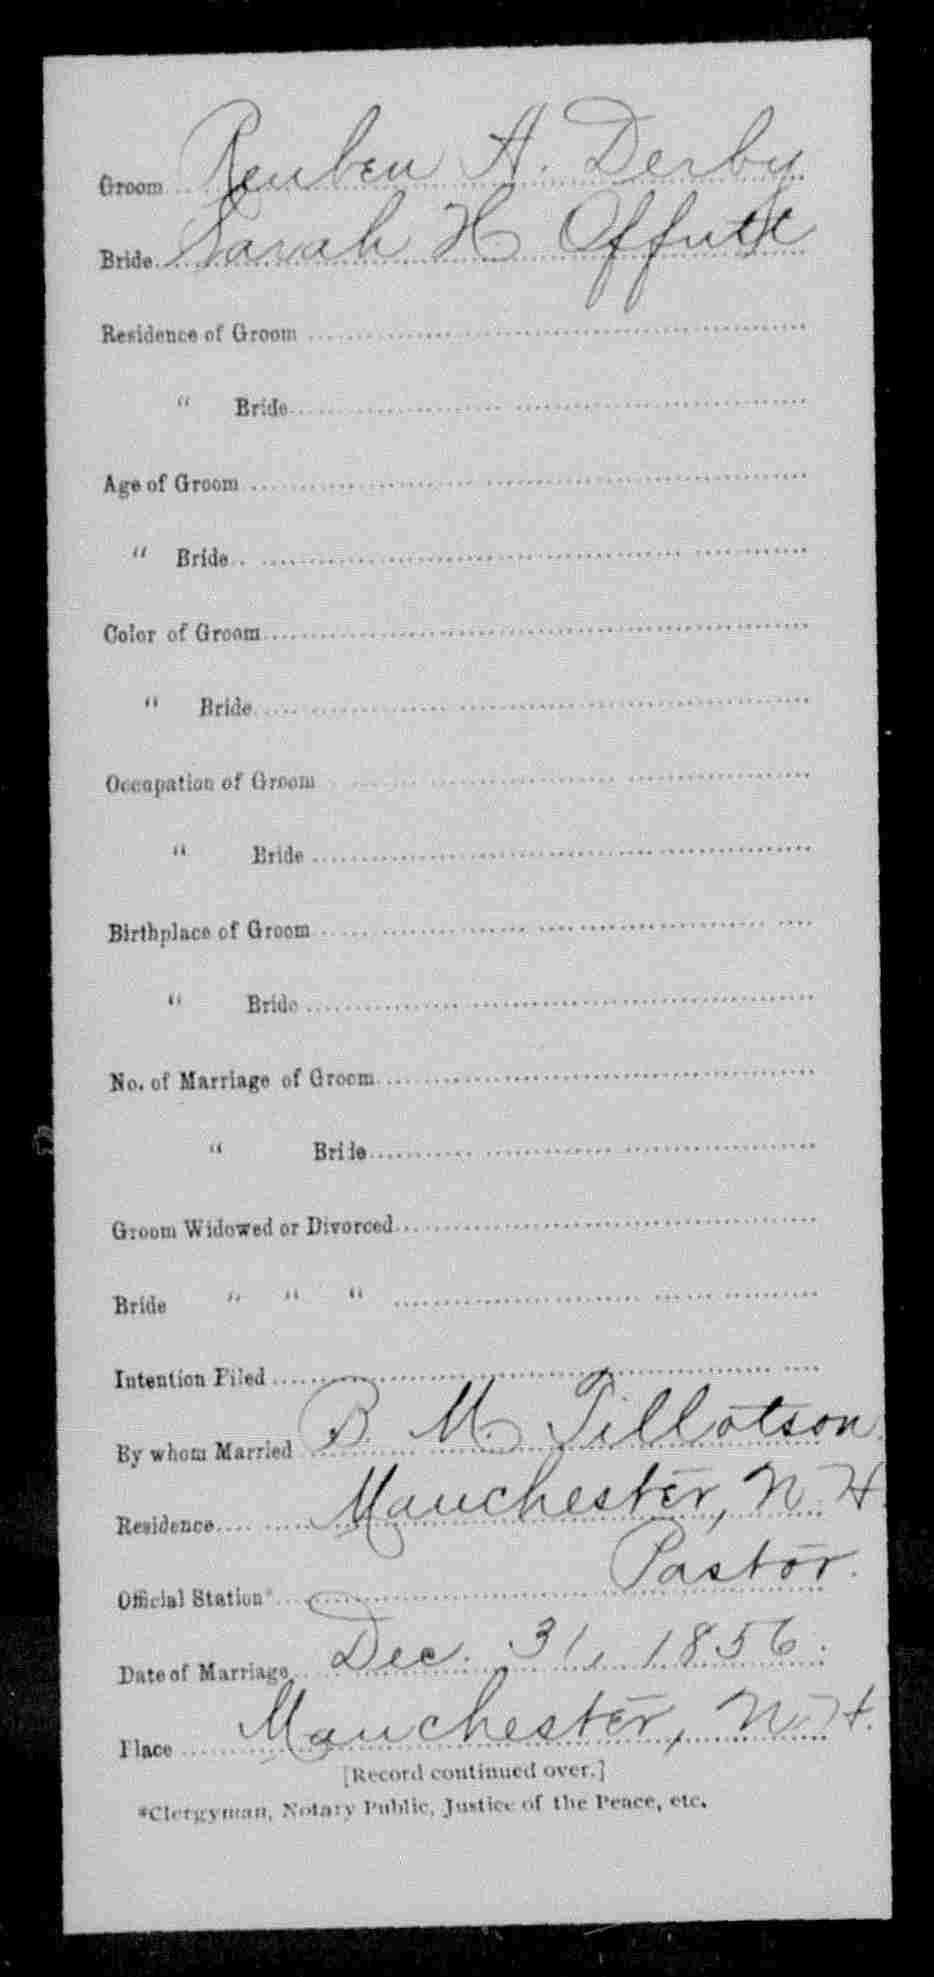 Groom Reuben A. Derby
Bride Sarah H Offutt
Residence of Groom
" Bride
Age of Groom
" Bride
Color of Groom
" Bride
Occupation of Groom
" Bride
Birthplace of Groom
" Bride
No. of Marriage of Groom
" Bride
Groom Widowed or Divorced
Bride " " "
Intention Filed
By whom Married B. M. Tillotson
Residence Manchester, N. H.
Official Station* Pastor.
Date of Marriage Dec. 31, 1856.
Place Manchester, N. H.
[Record continued over.]
*Clergyman, Notary Public, Justice of the Peace, etc.